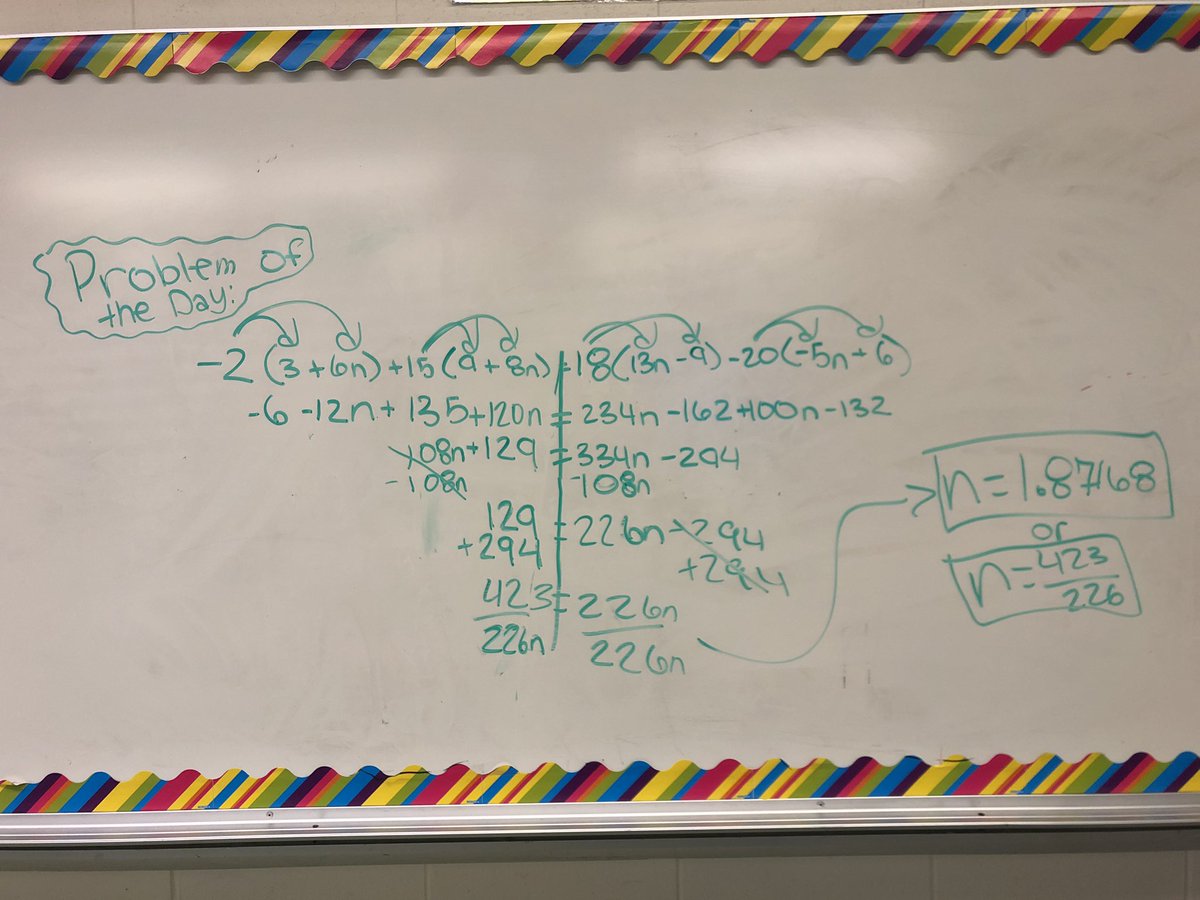 Problem of
the Day:
-2(3+6n)+15(9+8n)=18(13n-9)-20(-5n+6)
-6-12n+135+120n=234n-162+100n-132
108n+129=334n-294
-108n -108n
129=226n-294
+294 +294
423=226n
226n 226n
n=1.87168
or
n=423
226